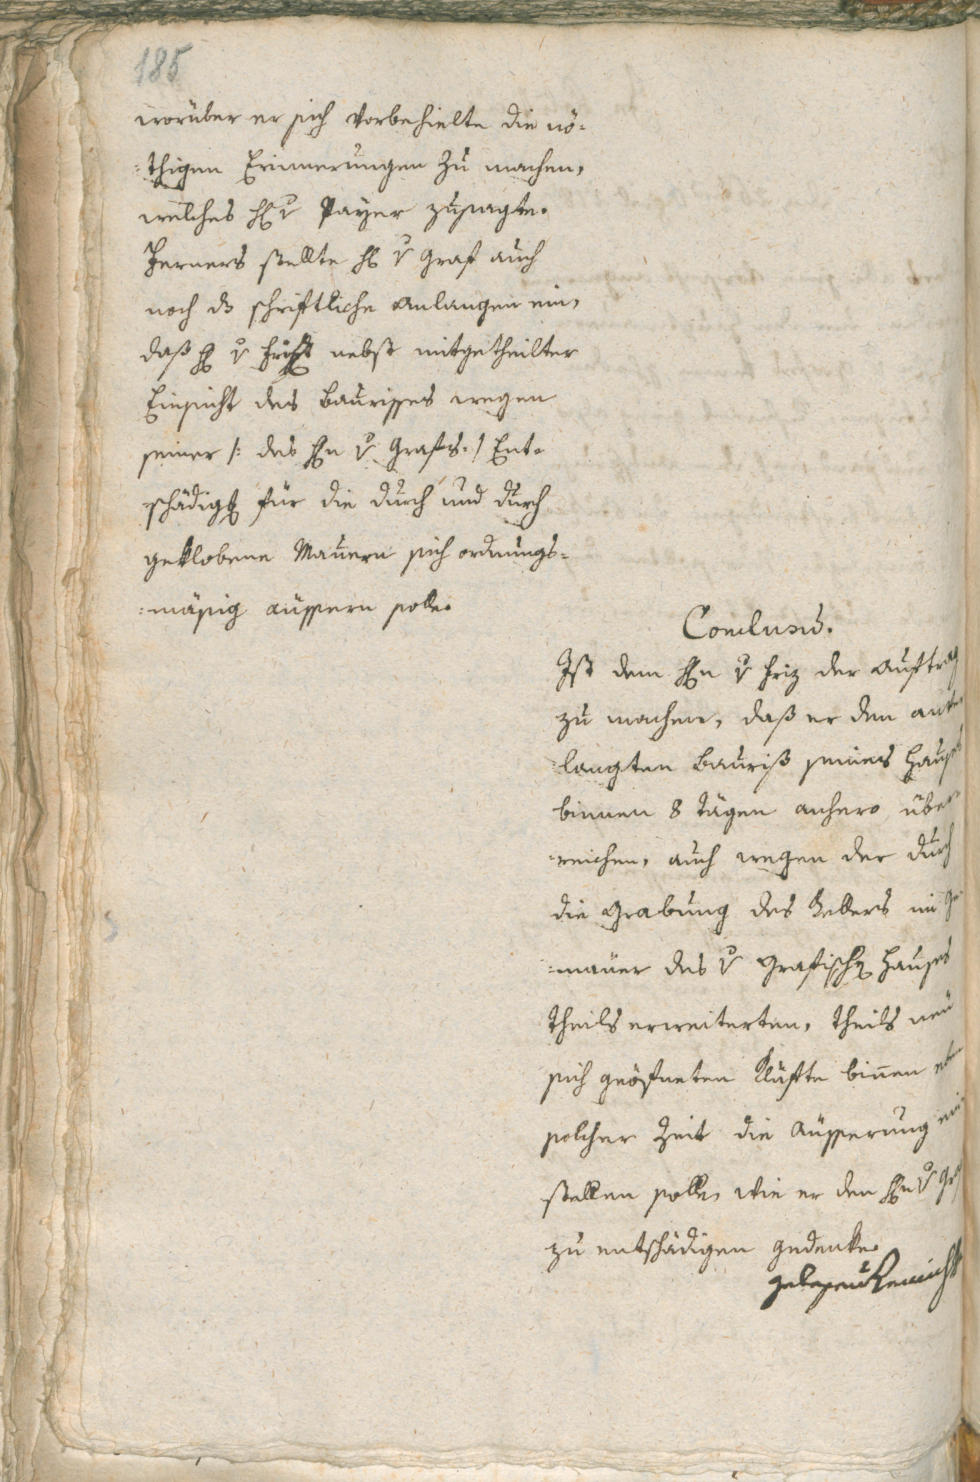 185
worüber er sich vorbehielte die nö-
=thigen Erinnerungen zu machen,
welches H: v Payer zusagte.
Ferners stellte H: v Graf auch
noch ds schriftliche Anlangen ein,
daß H: v Friz nebst mitgetheilter
Einsicht des Baurisses wegen
seiner /: des Hn v Grafs :/ Ent-
schädigg für die durch und durch
geklobene Mauern sich ordnungs-
=mäßig äussern solle.
Conclusum.
Ist dem Hn v Friz der Auftrag
zu machen, daß er den anver
=langten Bauriß seines Hauses
binnen 8 Tägen anhero über
=reichen, auch wegen der durch
die Grabung des Kellers im Ge
=mäuer des v Grafischen Hauses
theils erweiterten, theils neu
sich geöfneten Klüfte binnen eben
solcher Zeit die Äusserung ein
stellen solle, wie er den Hn v Graf
zu entschädigen gedenke.
gelesen